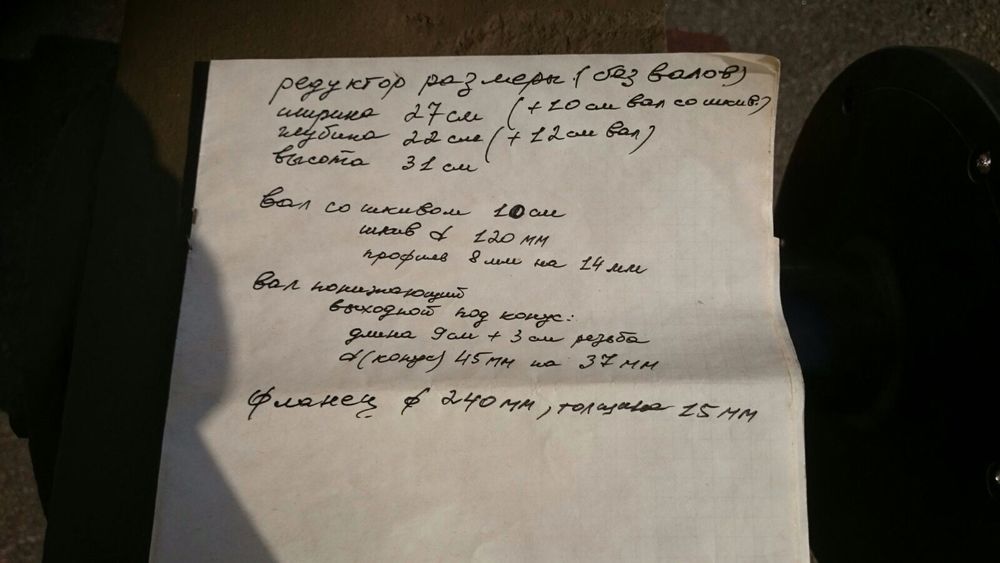 редуктор размеры: (без валов)
ширина 27см (+10см вал со шкив)
глубина 22см (+12см вал)
высота 31см
вал со шкивом 10см
шкив d 120мм
профиль 8мм на 14мм
вал понижающий
выходной под конус:
длина 9см + 3см резьба
d(конус) 45мм на 37мм
Фланец ф 240мм, толщина 15мм